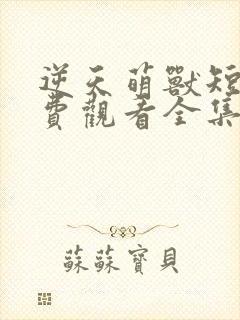 逆天萌獸短
費觀看全集
蘇蘇寶貝